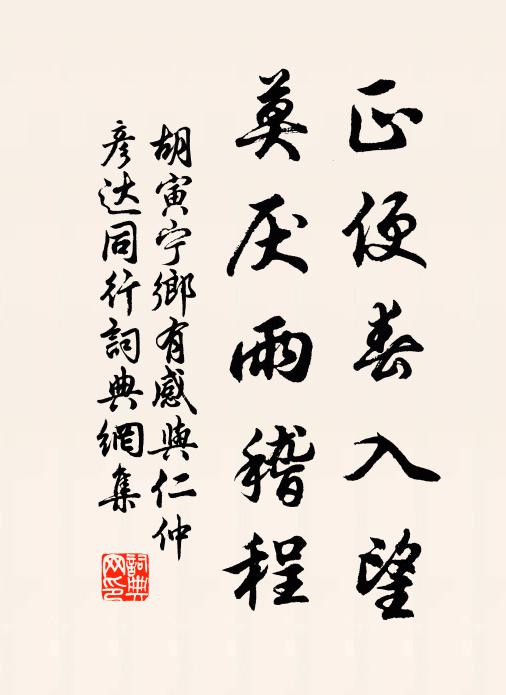 正便春入望
莫厌雨稽程
胡寅宁鄉有感與仁仲
彦达同行詞典網集
詞典
网印